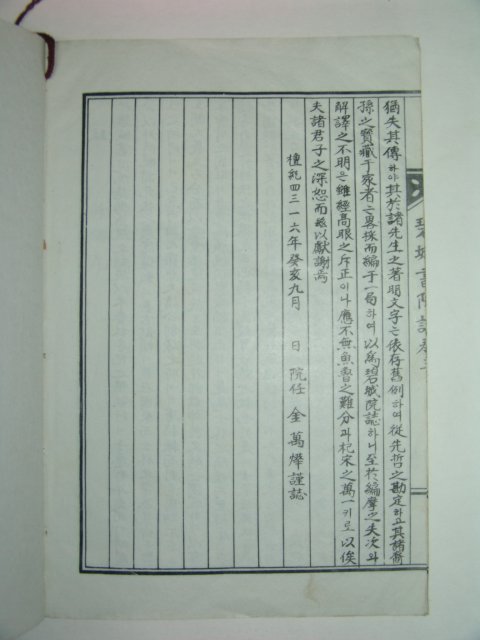 碧城書院誌卷之
猶失其傳하야其於諸先生之著明文字는依存舊例하여從先哲之勘定하고其諸裔
孫之寶藏于家者는畧採而編于一局하여以爲碧城院誌하니至於編摩之失次와
解譯之不明은雖經高眼之斥正이나應不無魚魯之難分과杞宋之萬一키로以俟
夫諸君子之深恕而極以獻謝焉
檀紀四三一六年癸亥九月 日 院任 金萬燁謹誌